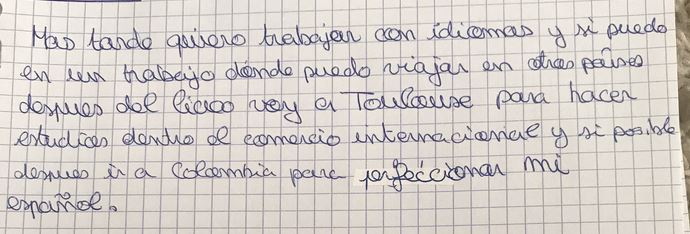 Mas tarde quiero trabajar con idiomas y si puedo
en un trabajo dónde puedo viajar en otros países
despues del liceo voy a Toulouse para hacer
estudios dentro el comercio internacional y si posible
despues ir a Colombia para perfeccionar mi
español.